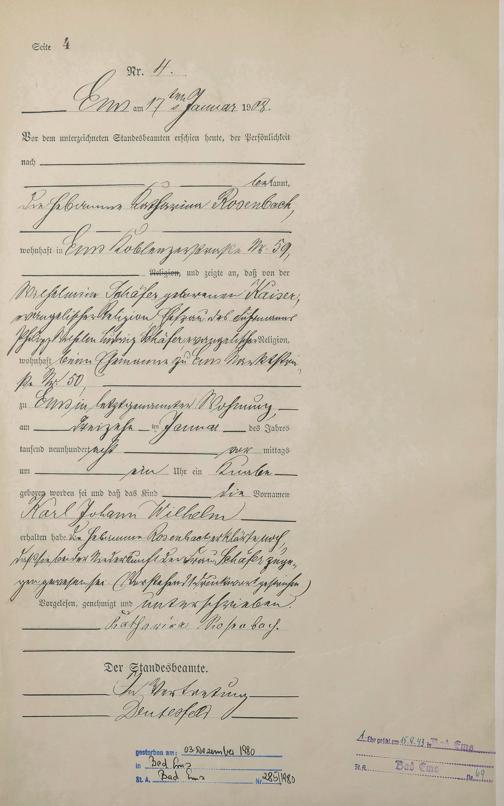 Seite 4
Nr. 4.
Ems am 17ten Januar 1908.
Vor dem unterzeichneten Standesbeamten erschien heute, der Persönlichkeit
nach
bekannt,
die Hebamme Katharina Rosenbach,
wohnhaft in Ems Koblenzerstraße Nr. 59,
Religion, und zeigte an, daß von der
Wilhelmine Schäfer geborenen Kaiser,
evangelischer Religion Ehefrau des
Philipp Ludwig Schäfer evangelischer Religion,
wohnhaft beim Ehemanne zu Ems Marktstra-
ße Nr. 50,
zu Ems in letztgenannter Wohnung,
am dreizehn ten Januar des Jahres
tausend neunhundert acht vor mittags
um ein Uhr ein Knabe
geboren worden sei und daß das Kind die Vornamen
Karl Johann Wilhelm
erhalten habe. Die Hebamme Rosenbach erklärte noch,
daß sie bei der Niederkunft der Frau Schäfer zuge-
gen gewesen sei. (Vorstehend 1 Druckwort gestrichen)
Vorgelesen, genehmigt und unterschrieben.
Katharina Rosenbach.
Der Standesbeamte.
In Vertretung
gestorben am: 03. Dezember 1980
in Bad Ems
St. A. Bad Ems Nr. 285/1980
1. Ehe geschl. am 15.4.43 in Bad Ems
St. A. Bad Ems Nr. 69